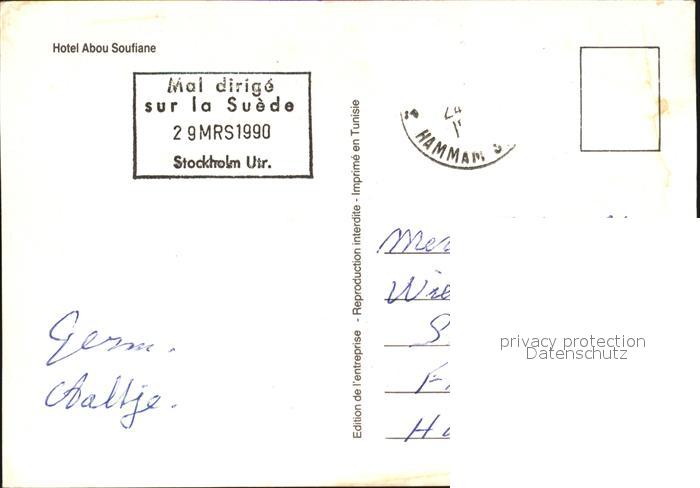 Hotel Abou Soufiane
Mal dirigé
sur la Suède
29MRS1990
Stockholm Utr.
Edition de l'entreprise - Reproduction interdite - Imprimé en Tunisie
HAMMAM S
Mer
Wie
S
F.
privacy protection
Datenschutz
Germ.
Aaltje.